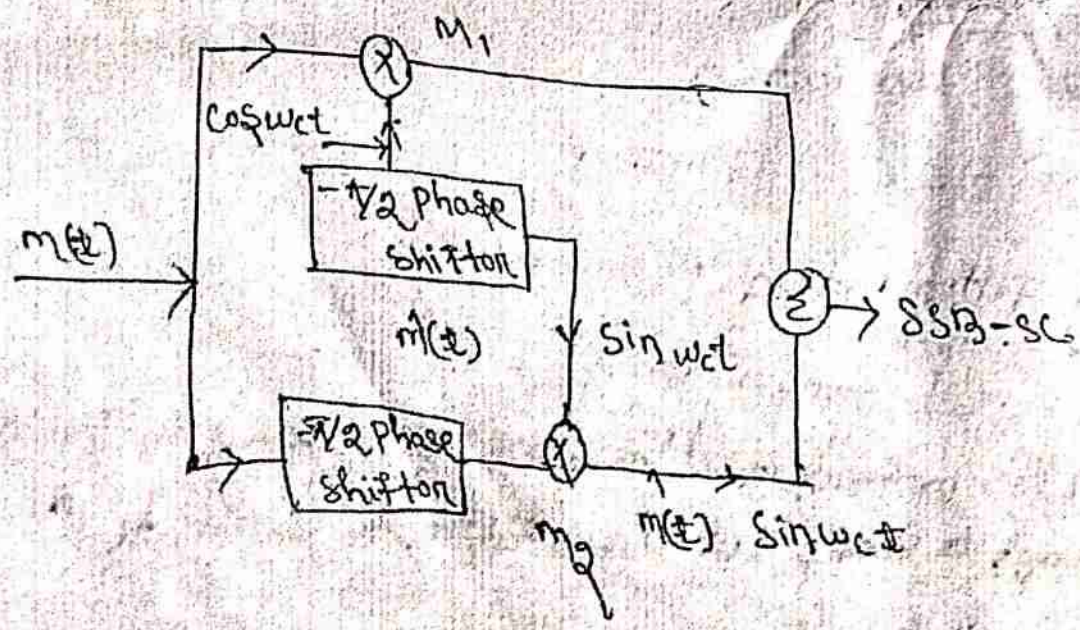 M₁
cosωct
-π/2 phase
shifter
m(t)
m̂(t)
sin ωct
Σ
SSB-SC
-π/2 phase
shifter
X
X
m̂(t) . sin ωc t
m₂